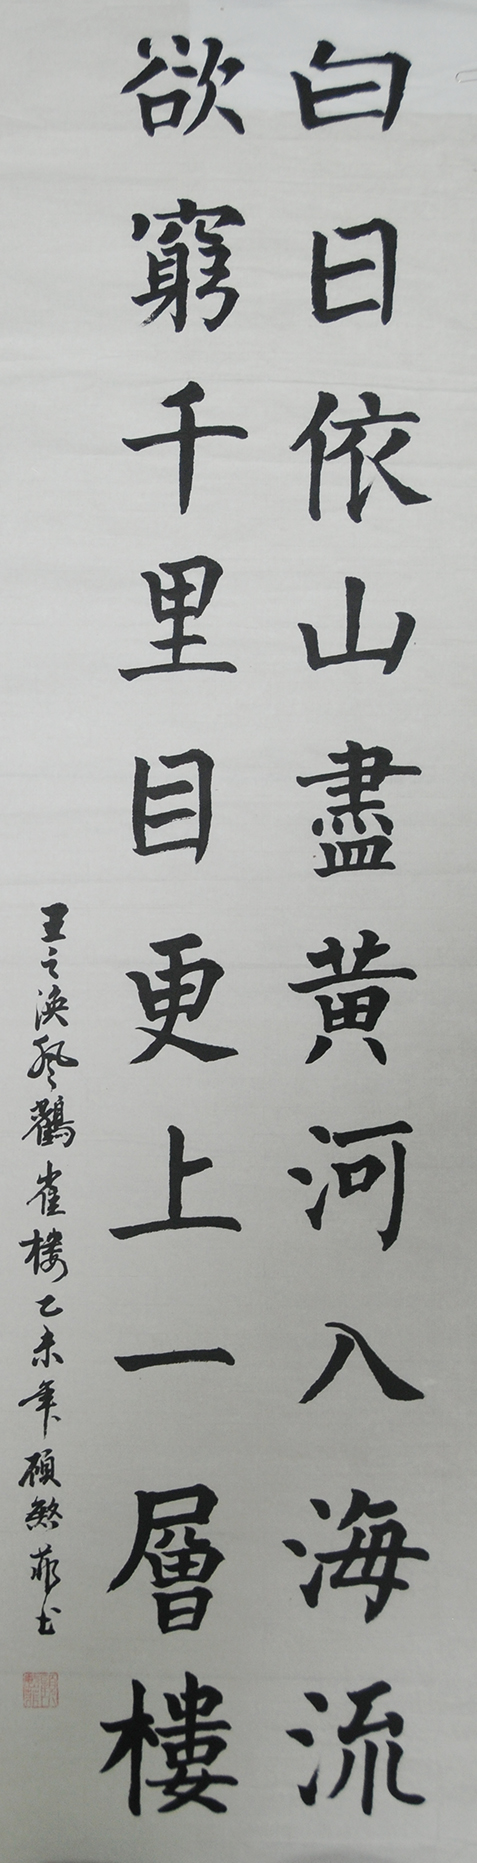 白日依山盡黄河入海流
欲窮千里目更上一層樓
王之渙登鸛雀樓乙未年顾煞菲书